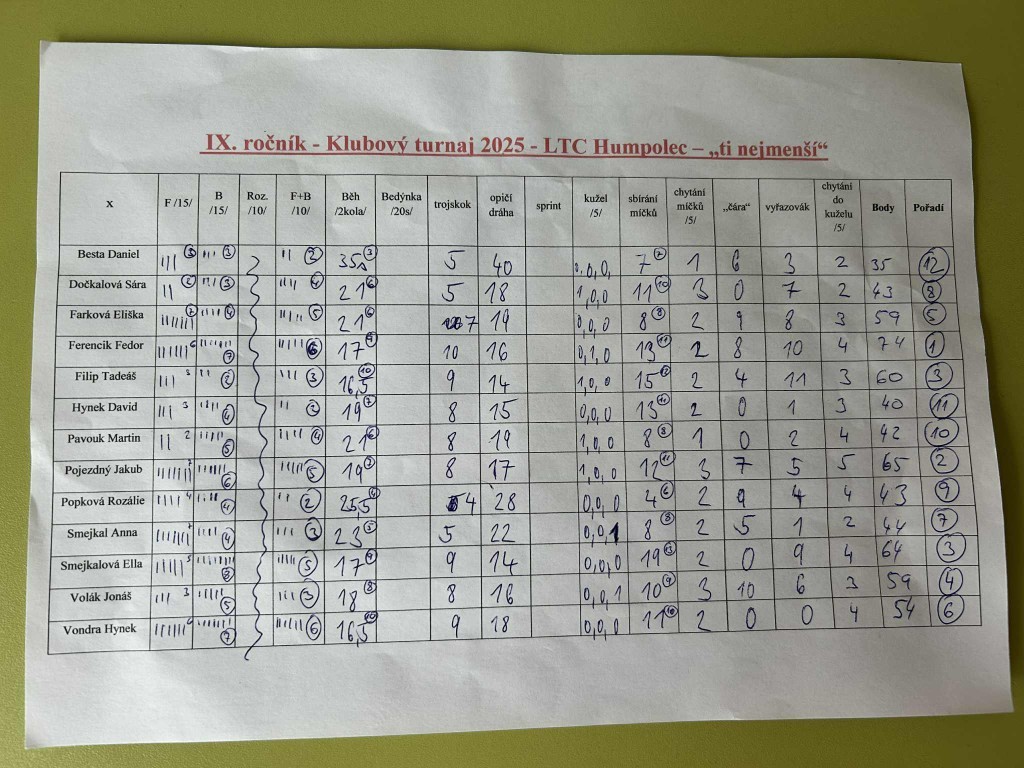 IX. ročník - Klubový turnaj 2025 - LTC Humpolec – „ti nejmenší“
x F /15/ B /15/ Roz. /10/ F+B /10/ Běh /2kola/ Bedýnka /20s/ trojskok opičí dráha sprint kužel /5/ sbírání míčků chytání míčků /5/ „čára“ vyřazovák chytání do kuželu /5/ Body Pořadí
Besta Daniel 3 3 2 35,5 3 5 40 0,0,0, 7 1 6 3 2 35 12
Dočkalová Sára 2 3 4 21 6 5 18 1,0,0 11 10 3 0 7 2 43 8
Farková Eliška 7 4 5 21 6 7 19 0,0,0 8 2 9 8 3 59 5
Ferencik Fedor 6 7 6 17 9 10 16 0,1,0 13 2 8 10 4 74 1
Filip Tadeáš 3 2 3 16,5 10 9 14 1,0,0 15 2 4 11 3 60 3
Hynek David 3 4 2 19 7 8 15 0,0,0 13 2 0 1 3 40 11
Pavouk Martin 2 5 4 21 6 8 19 1,0,0 8 8 1 0 2 4 42 10
Pojezdný Jakub 7 6 5 19 7 8 17 1,0,0 12 11 3 7 5 5 65 2
Popková Rozálie 4 4 2 25,5 4 4 28 0,0,0 4 6 2 9 4 4 43 9
Smejkal Anna 7 4 3 23 5 5 22 0,0,1 8 8 2 5 1 2 44 7
Smejkalová Ella 5 5 17 9 9 14 0,0,0 19 13 2 0 9 4 64 3
Volák Jonáš 3 5 3 18 8 8 16 0,0,1 10 9 3 10 6 3 59 4
Vondra Hynek 6 7 6 16,5 10 9 18 0,0,0 11 10 2 0 0 4 54 6